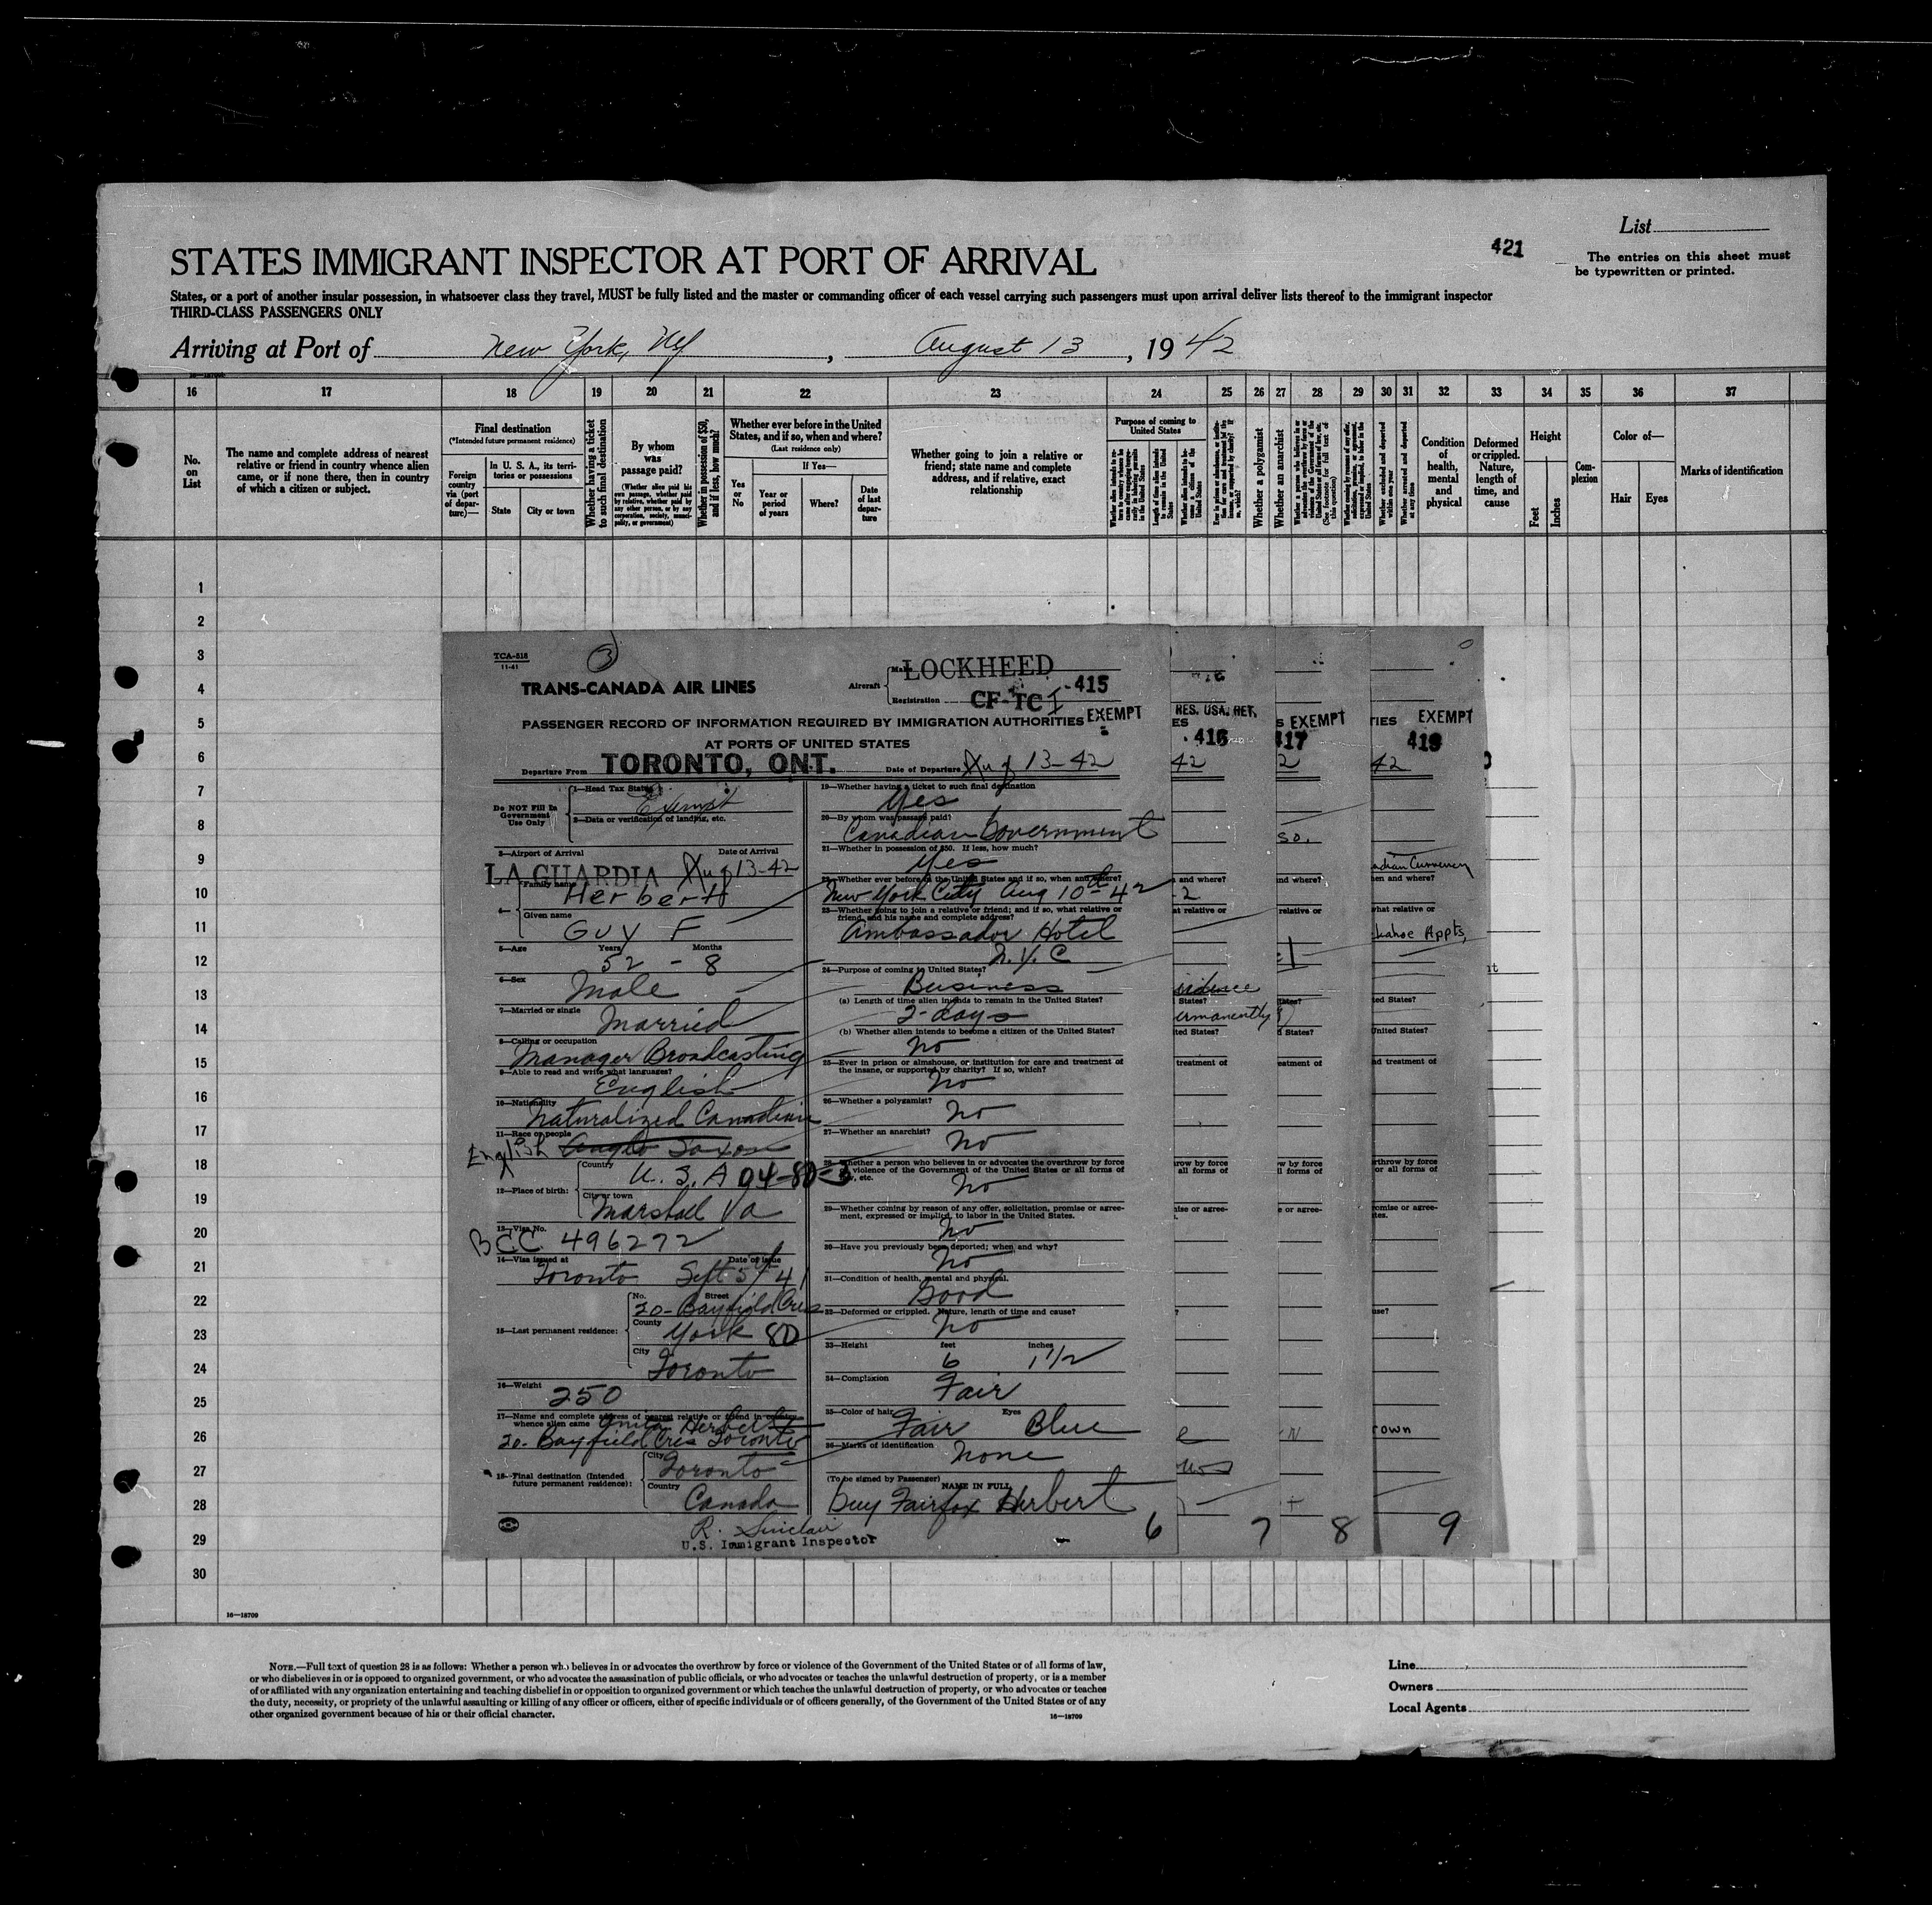 List
421
The entries on this sheet must
be typewritten or printed.
STATES IMMIGRANT INSPECTOR AT PORT OF ARRIVAL
States, or a port of another insular possession, in whatsoever class they travel, MUST be fully listed and the master or commanding officer of each vessel carrying such passengers must upon arrival deliver lists thereof to the immigrant inspector
THIRD-CLASS PASSENGERS ONLY
Arriving at Port of New York, NY, August 13, 1942
16 17 18 19 20 21 22 23 24 25 26 27 28 29 30 31 32 33 34 35 36 37
No. on List
The name and complete address of nearest
relative or friend in country whence alien
came, or if none there, then in country
of which a citizen or subject.
Final destination
(*Intended future permanent residence)
Foreign country via (port of departure)—
In U. S. A., its territories or possessions
State
City or town
Whether having a ticket to such final destination
By whom was passage paid?
(Whether alien paid his own passage, whether paid by relative, whether paid by any other person, or by any corporation, society, municipality, or government)
Whether in possession of $50, and if less, how much?
Whether ever before in the United
States, and if so, when and where?
(Last residence only)
If Yes—
Yes or No
Year or period of years
Where?
Date of last departure
Whether going to join a relative or
friend; state name and complete
address, and if relative, exact
relationship
Purpose of coming to United States
Length of time alien intends to remain in the United States
Whether a polygamist
Whether an anarchist
Whether excluded and deported within one year
Whether arrested and deported at any time
Condition of health, mental and physical
Deformed or crippled. Nature, length of time, and cause
Height
Feet
Inches
Complexion
Color of—
Hair
Eyes
Marks of identification
1
2
3
4
5
6
7
8
9
10
11
12
13
14
15
16
17
18
19
20
21
22
23
24
25
26
27
28
29
30
TCA-516
11-41
3
TRANS-CANADA AIR LINES
Aircraft
Make LOCKHEED
Registration CF-TCI -415
PASSENGER RECORD OF INFORMATION REQUIRED BY IMMIGRATION AUTHORITIES EXEMPT
AT PORTS OF UNITED STATES
Departure From TORONTO, ONT. Date of Departure Aug 13-42
Do NOT Fill In
Government
Use Only
1—Head Tax Status
Exempt
2—Data or verification of landing, etc.
3—Airport of Arrival Date of Arrival
LA GUARDIA Aug 13-42
4—
Family name
Herbert
Given name
GUY F
5—Age Years Months
52 - 8
6—Sex
Male
7—Married or single
Married
8—Calling or occupation
Manager Broadcasting
9—Able to read and write what languages?
English
10—Nationality
Naturalized Canadian
11—Race or people
English Anglo Saxon
12—Place of birth:
Country
U. S. A 04-80-3
City or town
Marshall Va
13—Visa No.
BCC. 496272
14—Visa issued at Date of issue
Toronto Sept 5/41
15—Last permanent residence:
No. Street
20- Bayfield Cres
County
York 80
City
Toronto
16—Weight
250
17—Name and complete address of nearest relative or friend in country
whence alien came Anita Herbert
20- Bayfield Cres Toronto
18—Final destination (Intended
future permanent residence):
City
Toronto
Country
Canada
R. Sinclair
U.S. Immigrant Inspector
19—Whether having a ticket to such final destination
Yes
20—By whom was passage paid?
Canadian Government
21—Whether in possession of $50. If less, how much?
Yes
22—Whether ever before in the United States and if so, when and where?
New York City Aug 10th 42
23—Whether going to join a relative or friend; and if so, what relative or
friend, and his name and complete address?
Ambassador Hotel
N.Y.C
24—Purpose of coming to United States?
Business
(a) Length of time alien intends to remain in the United States?
2-days
(b) Whether alien intends to become a citizen of the United States?
No
25—Ever in prison or almshouse, or institution for care and treatment of
the insane, or supported by charity? If so, which?
No
26—Whether a polygamist?
No
27—Whether an anarchist?
No
28—Whether a person who believes in or advocates the overthrow by force
or violence of the Government of the United States or all forms of
law, etc.
No
29—Whether coming by reason of any offer, solicitation, promise or agree-
ment, expressed or implied, to labor in the United States.
No
30—Have you previously been deported; when and why?
No
31—Condition of health, mental and physical.
Good
32—Deformed or crippled. Nature, length of time and cause?
No
33—Height feet inches
6 1 1/2
34—Complexion
Fair
35—Color of hair Eyes
Fair Blue
36—Marks of identification
None
(To be signed by Passenger)
NAME IN FULL
Guy Fairfax Herbert
6 7 8 9
RES. USA. RET.
416
EXEMPT
417
EXEMPT
419
16—18709
NOTE.—Full text of question 28 is as follows: Whether a person who believes in or advocates the overthrow by force or violence of the Government of the United States or of all forms of law,
or who disbelieves in or is opposed to organized government, or who advocates the assassination of public officials, or who advocates or teaches the unlawful destruction of property, or is a member
of or affiliated with any organization entertaining and teaching disbelief in or opposition to organized government or which teaches the unlawful destruction of property, or who advocates or teaches
the duty, necessity, or propriety of the unlawful assaulting or killing of any officer or officers, either of specific individuals or of officers generally, of the Government of the United States or of any
other organized government because of his or their official character.
16—18709
Line
Owners
Local Agents